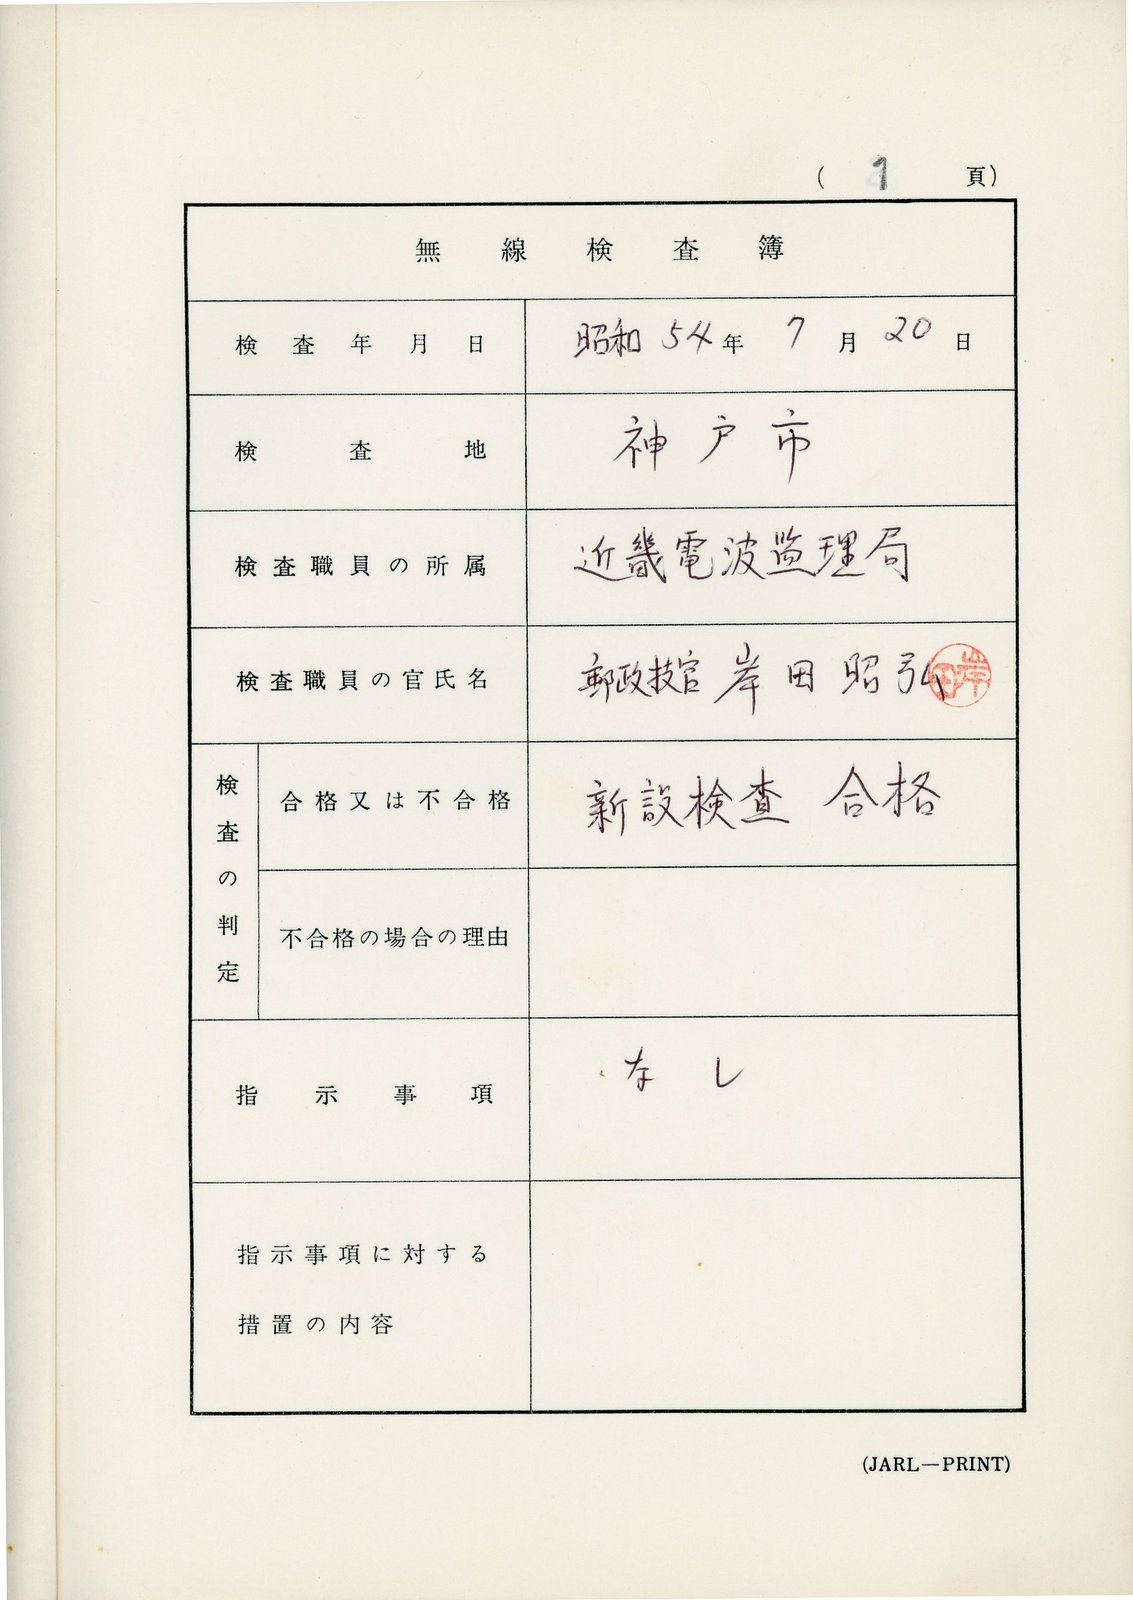 ( 1 頁)
無線検査簿
検査年月日 昭和54年7月20日
検査地 神戸市
検査職員の所属 近畿電波監理局
検査職員の官氏名 郵政技官 岸田昭弘 岸田
検査の判定
合格又は不合格 新設検査 合格
不合格の場合の理由
指示事項 なし
指示事項に対する
措置の内容
(JARL—PRINT)